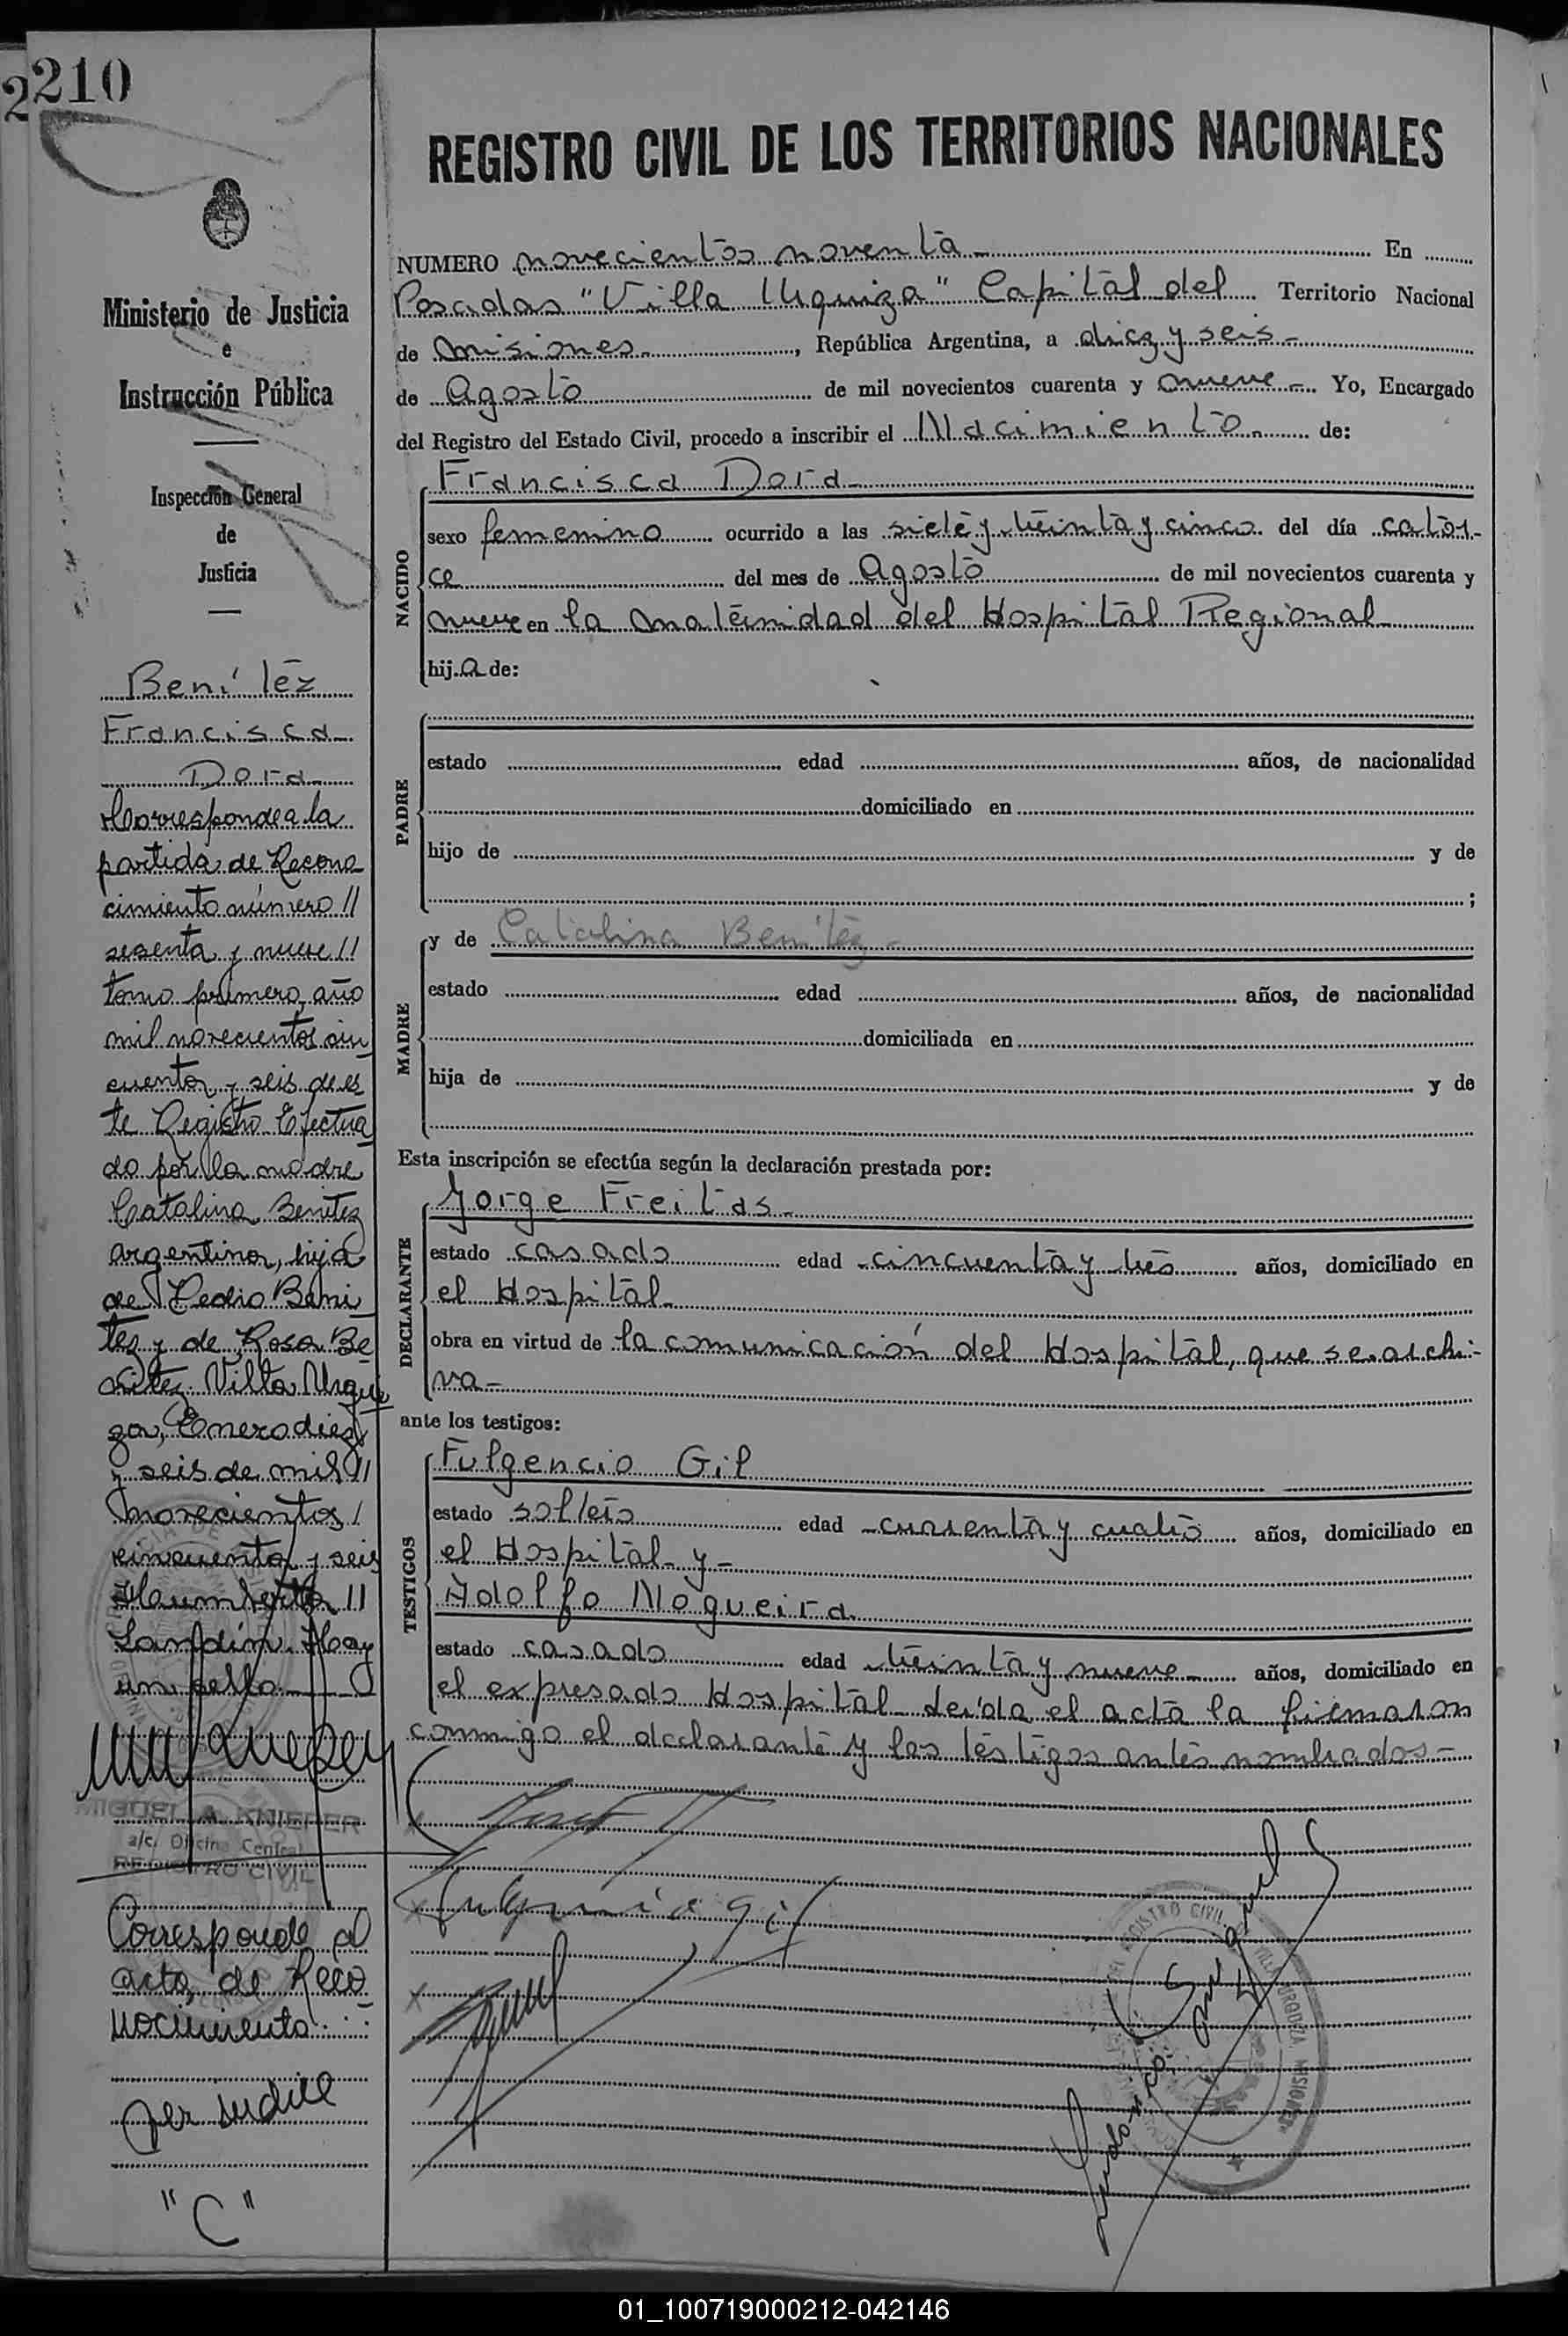 2210
REGISTRO CIVIL DE LOS TERRITORIOS NACIONALES
Ministerio de Justicia
e
Instrucción Pública
Inspección General
de
Justicia
Benítez
Francisca
Dora
Corresponde a la
partida de Recono
cimiento número //
sesenta y nueve //
tomo primero, año
mil novecientos cin
cuenta y seis de es
te Registro Efectua
do por la madre
Catalina Benitez
argentina, hija
de Pedro Beni
tez y de Rosa Be
nitez. Villa Urqui
za, Enero diez
y seis de mil //
novecientos /
cincuenta y seis
Humberto //
Landin. Hay
un sello
MIGUEL A. KNIEPER
a/c. Oficina Central
REGISTRO CIVIL
Corresponde al
acta de Reco
nocimiento
"C"
NUMERO novecientos noventa En
Posadas "Villa Urquiza" Capital del Territorio Nacional
de Misiones, República Argentina, a diez y seis
de Agosto de mil novecientos cuarenta y nueve Yo, Encargado
del Registro del Estado Civil, procedo a inscribir el Nacimiento de:
NACIDO
Francisca Dora
sexo femenino ocurrido a las siete y treinta y cinco del día cator-
ce del mes de Agosto de mil novecientos cuarenta y
nueve en la maternidad del Hospital Regional
hij a de:
PADRE
estado edad años, de nacionalidad
domiciliado en
hijo de y de
;
MADRE
y de Catalina Benítez
estado edad años, de nacionalidad
domiciliada en
hija de y de
Esta inscripción se efectúa según la declaración prestada por:
DECLARANTE
Jorge Freitas
estado casado edad cincuenta y tres años, domiciliado en
el Hospital
obra en virtud de la comunicación del Hospital, que se archi-
va
ante los testigos:
TESTIGOS
Fulgencio Gil
estado soltero edad cuarenta y cuatro años, domiciliado en
el Hospital y
Adolfo Nogueira
estado casado edad treinta y nueve años, domiciliado en
el expresado Hospital leída el acta la firmaron
conmigo el declarante y los testigos antes nombrados
Fulgencio Gil
REGISTRO CIVIL VILLA URQUIZA MISIONES
01_100719000212-042146